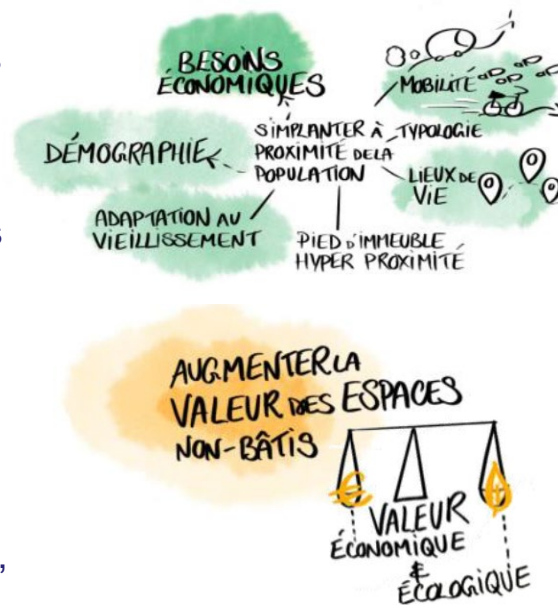 BESOINS
ÉCONOMIQUES
MOBILITÉ
DÉMOGRAPHIE
S'IMPLANTER À
PROXIMITÉ DE LA
POPULATION
TYPOLOGIE
LIEUX DE
VIE
ADAPTATION AU
VIEILLISSEMENT
PIED D'IMMEUBLE
HYPER PROXIMITÉ
AUGMENTER LA
VALEUR DES ESPACES
NON-BÂTIS
€
VALEUR
ÉCONOMIQUE
&
ÉCOLOGIQUE